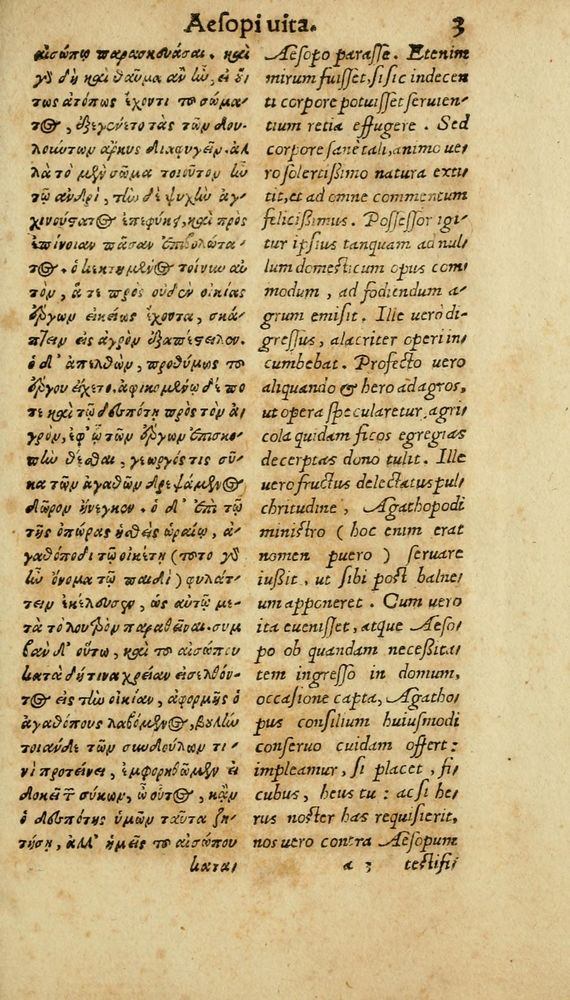 Aesopi uita. 3
αἰσώπῳ παρασκευάσαι. καὶ
γὸ δὴ καὶ θαῦμα ἂν ἦν, εἰ οὕ
τως ἀτόπως ἔχοντι τὸ σώμα
τος, ἐξεγένετο τὰς τῶν δου
λούντων ἄρκυς διαφυγεῖν. ἀλ
λὰ τὸ μὲν σῶμα τοιοῦτον ἦν
τῷ ἀνδρὶ, τὴν δὲ ψυχὴν ἀγ
χινούστατος ἐπεφύκει, καὶ πρὸς
ἐπίνοιαν πᾶσαν ἐπιβολώτα
τος. ὁ κεκτημένος τοίνυν αὐ
τὸν, ἅτε πρὸς οὐδὲν οἰκίας
ἔργων οἰκείως ἔχοντα, σκά
πτειν εἰς ἀγρὸν ἐξαπέστειλεν.
ὁ δ' ἀπελθὼν, προθύμως τοῦ
ἔργου εἴχετο. ἀφικομένῳ δέ πο
τε καὶ τῷ δεσπότῃ πρὸς τὸν ἀ
γρὸν, ἐφ' ᾧ τῶν ἔργων ἐπισκο
πὴν θέσθαι, γεωργός τις σῦ
κα τῶν ἀγαθῶν δρεψάμενος
δῶρον ἤνεγκεν. ὁ δ' ἐπὶ τῷ
τῆς ὀπώρας ἡσθεὶς ὡραίῳ, ἀ
γαθόποδι τῷ οἰκέτῃ (τοῦτο γὸ
ἦν ὄνομα τῷ παιδὶ) φυλάτ
τειν ἐκέλευσεν, ὡς αὐτῷ με
τὰ τὸ λουτρὸν παραθεῖναι. συμ
βὰν δ' οὕτω, καὶ τοῦ αἰσώπου
κατὰ δή τινα χρείαν εἰσελθόν
τος εἰς τὴν οἰκίαν, ἀφορμῆς ὁ
ἀγαθόπους λαβόμενος, βουλὴν
τοιάνδε τῶν συνδούλων τι
νὶ προτείνει, ἐμφορηθῶμεν εἰ
δοκεῖ τῶν σύκων, ὦ οὗτος, κἂν
ὁ δεσπότης ἡμῶν ταῦτα ζη
τήσῃ, ἀλλ' ἡμεῖς τοῦ αἰσώπου
κατα
Aesopo parasse. Etenim
mirum fuisset, si sic indecen
ti corpore potuisset seruien
tium retia effugere. Sed
corpore sanè tali, animo ue
ro solertißimo natura exti
tit, et ad omne commentum
felicißimus. Possessor igi
tur ipsius tanquam ad nul
lum domesticum opus com
modum, ad fodiendum a-
grum emisit. Ille uerò di-
gressus, alacriter operi in
cumbebat. Profecto uero
aliquando & hero ad agros,
ut opera specularetur, agri
cola quidam ficos egregias
decerptas dono tulit. Ille
uero fructus delectatus pul
chritudine, Agathopodi
ministro (hoc enim erat
nomen puero) seruare
iußit, ut sibi post balne
um apponeret. Cum uero
ita euenisset, atque Aeso
po ob quandam neceßita
tem ingresso in domum,
occasione capta, Agatho
pus consilium huiusmodi
conseruo cuidam offert:
impleamur, si placet, fi
cubus, heus tu: ac si he
rus noster has requisierit,
nos uero contra Aesopum
a 3 testifi